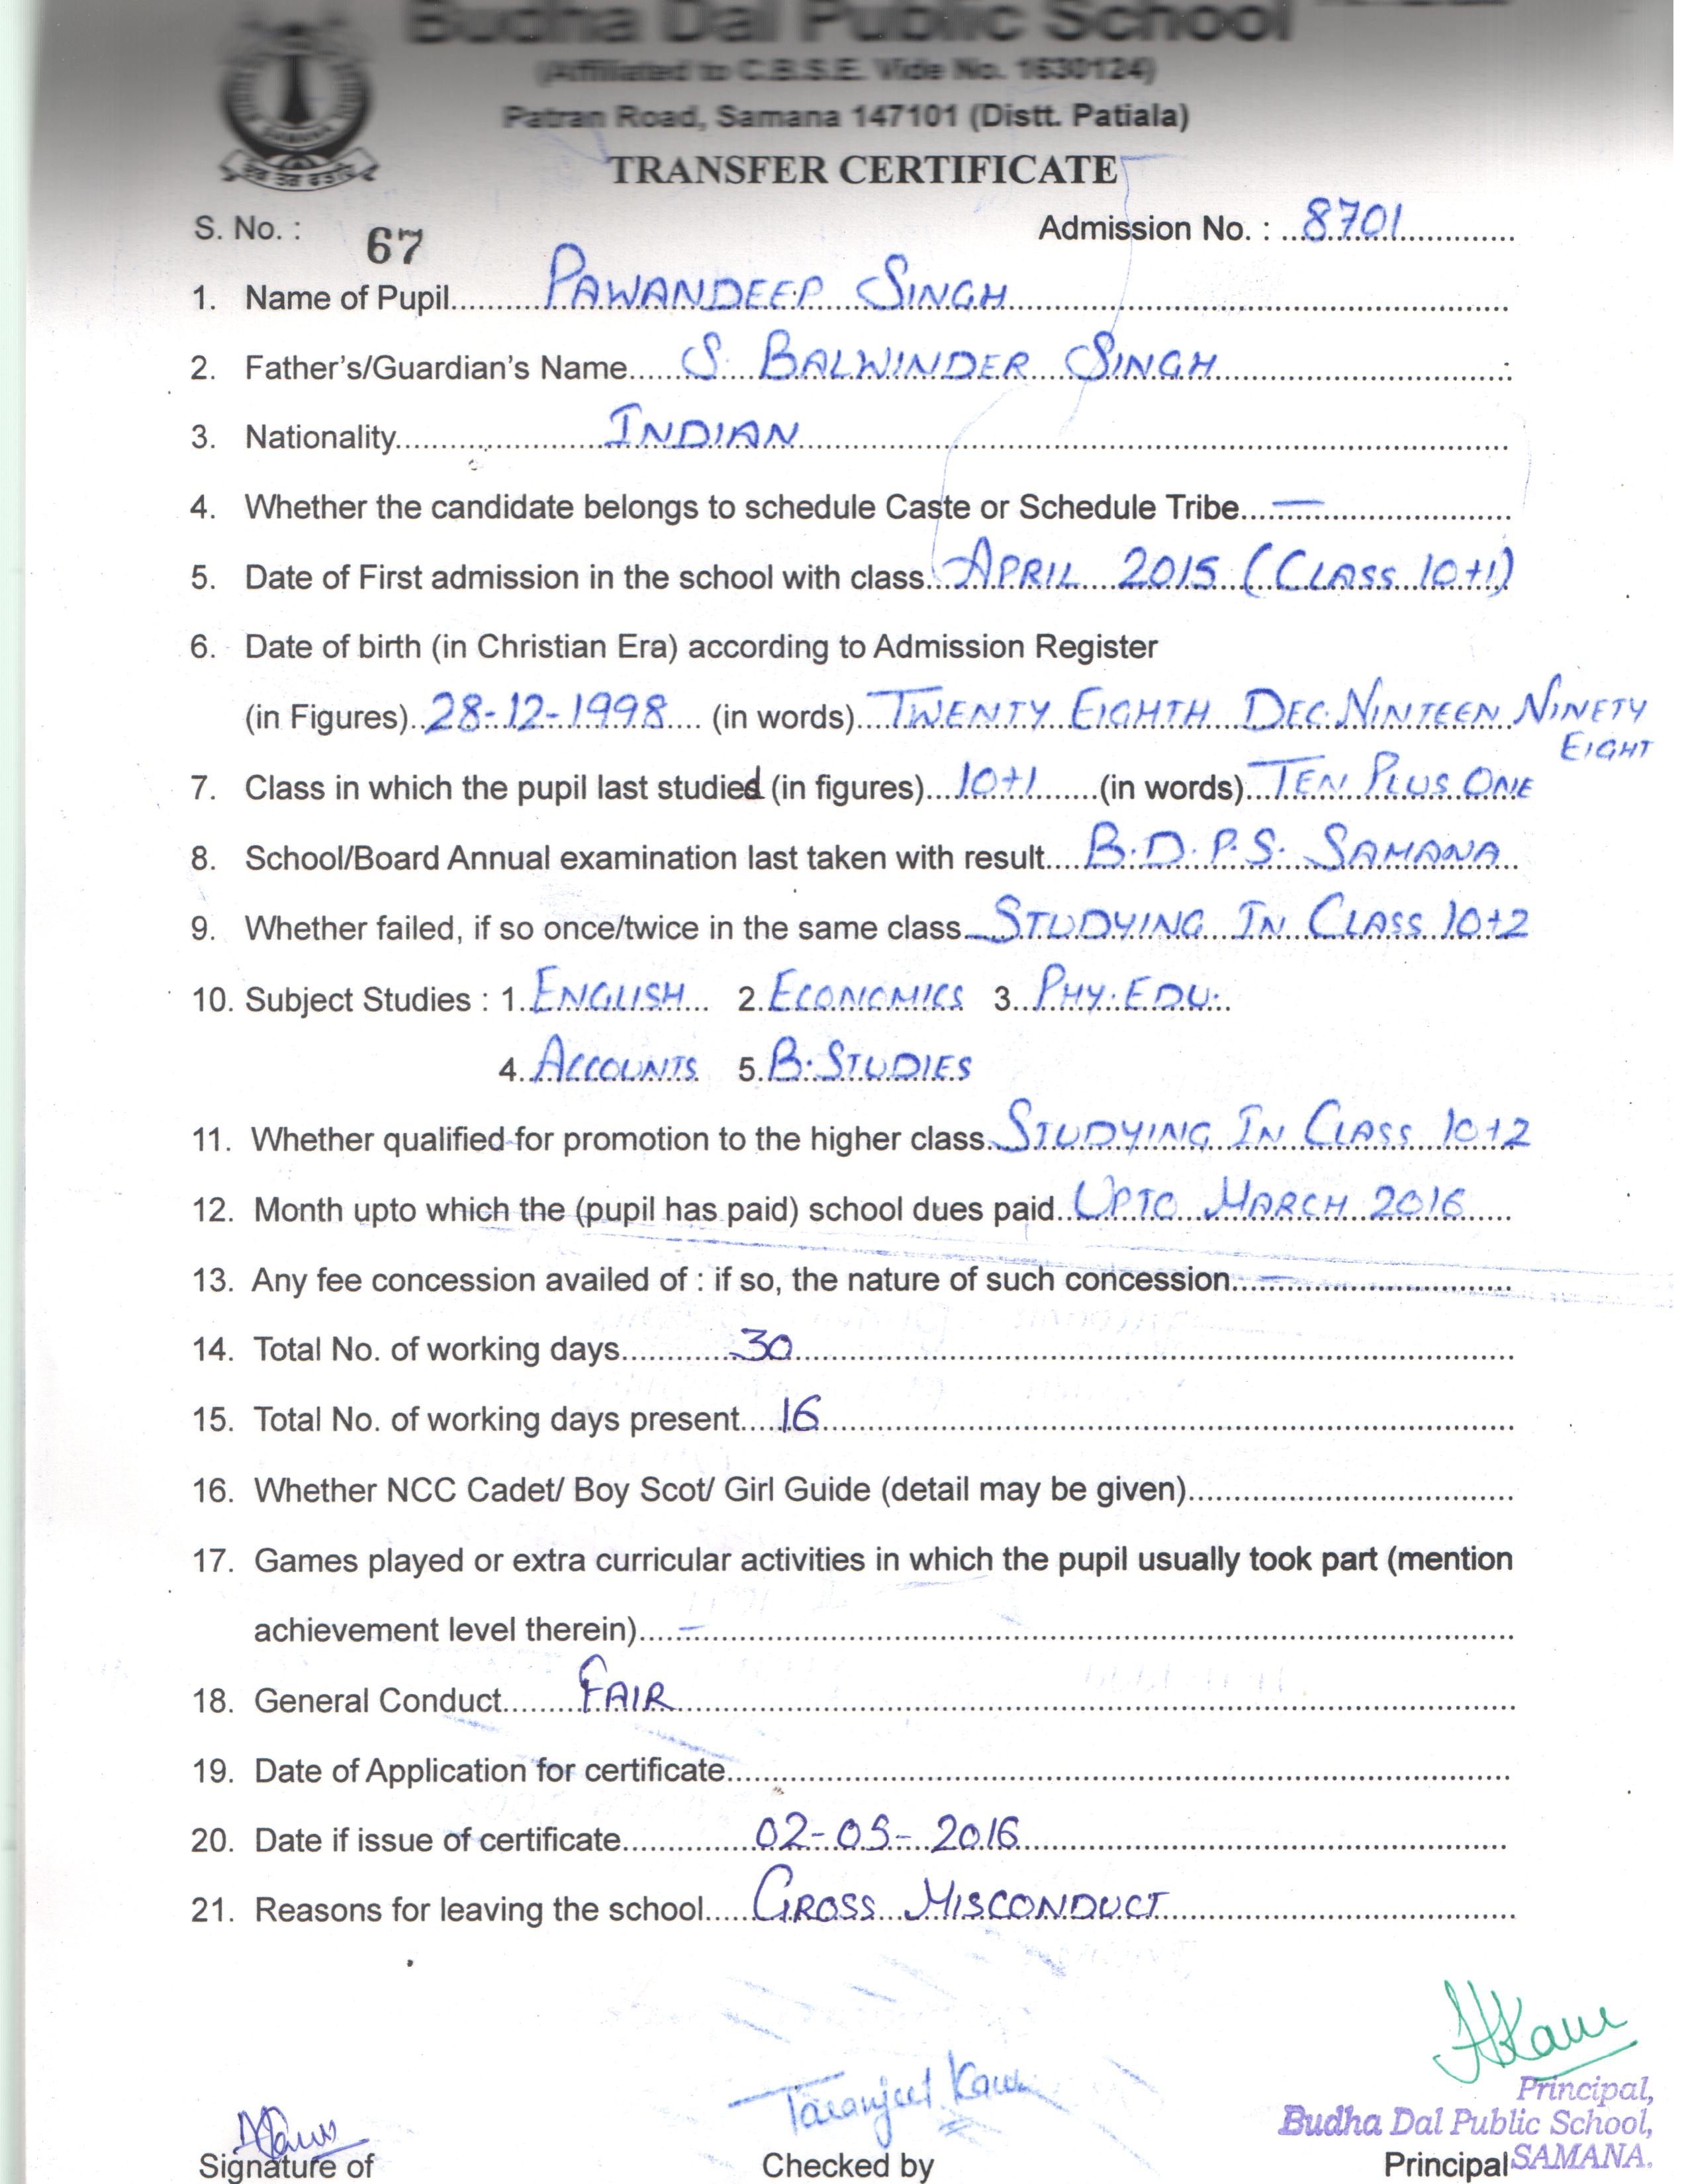 Budha Dal Public School
(Affiliated to C.B.S.E. Vide No. 1630124)
Patran Road, Samana 147101 (Distt. Patiala)
SAMANA
TRANSFER CERTIFICATE
S. No. : 67 Admission No. : 8701
1. Name of Pupil PAWANDEEP SINGH
2. Father's/Guardian's Name S. BALWINDER SINGH
3. Nationality INDIAN
4. Whether the candidate belongs to schedule Caste or Schedule Tribe —
5. Date of First admission in the school with class APRIL 2015 (CLASS 10+1)
6. Date of birth (in Christian Era) according to Admission Register
(in Figures) 28-12-1998 (in words) TWENTY EIGHTH DEC. NINTEEN NINETY
EIGHT
7. Class in which the pupil last studied (in figures) 10+1 (in words) TEN PLUS ONE
8. School/Board Annual examination last taken with result B.D.P.S. SAMANA
9. Whether failed, if so once/twice in the same class STUDYING IN CLASS 10+2
10. Subject Studies : 1. ENGLISH 2. ECONOMICS 3. PHY. EDU.
4. ACCOUNTS 5. B. STUDIES
11. Whether qualified for promotion to the higher class STUDYING IN CLASS 10+2
12. Month upto which the (pupil has paid) school dues paid UPTO MARCH 2016
13. Any fee concession availed of : if so, the nature of such concession —
14. Total No. of working days 30
15. Total No. of working days present 16
16. Whether NCC Cadet/ Boy Scot/ Girl Guide (detail may be given)
17. Games played or extra curricular activities in which the pupil usually took part (mention
achievement level therein) —
18. General Conduct FAIR
19. Date of Application for certificate
20. Date if issue of certificate 02-05-2016
21. Reasons for leaving the school GROSS MISCONDUCT
Taranjeet Kaur
Principal,
Budha Dal Public School,
SAMANA.
Signature of Checked by Principal